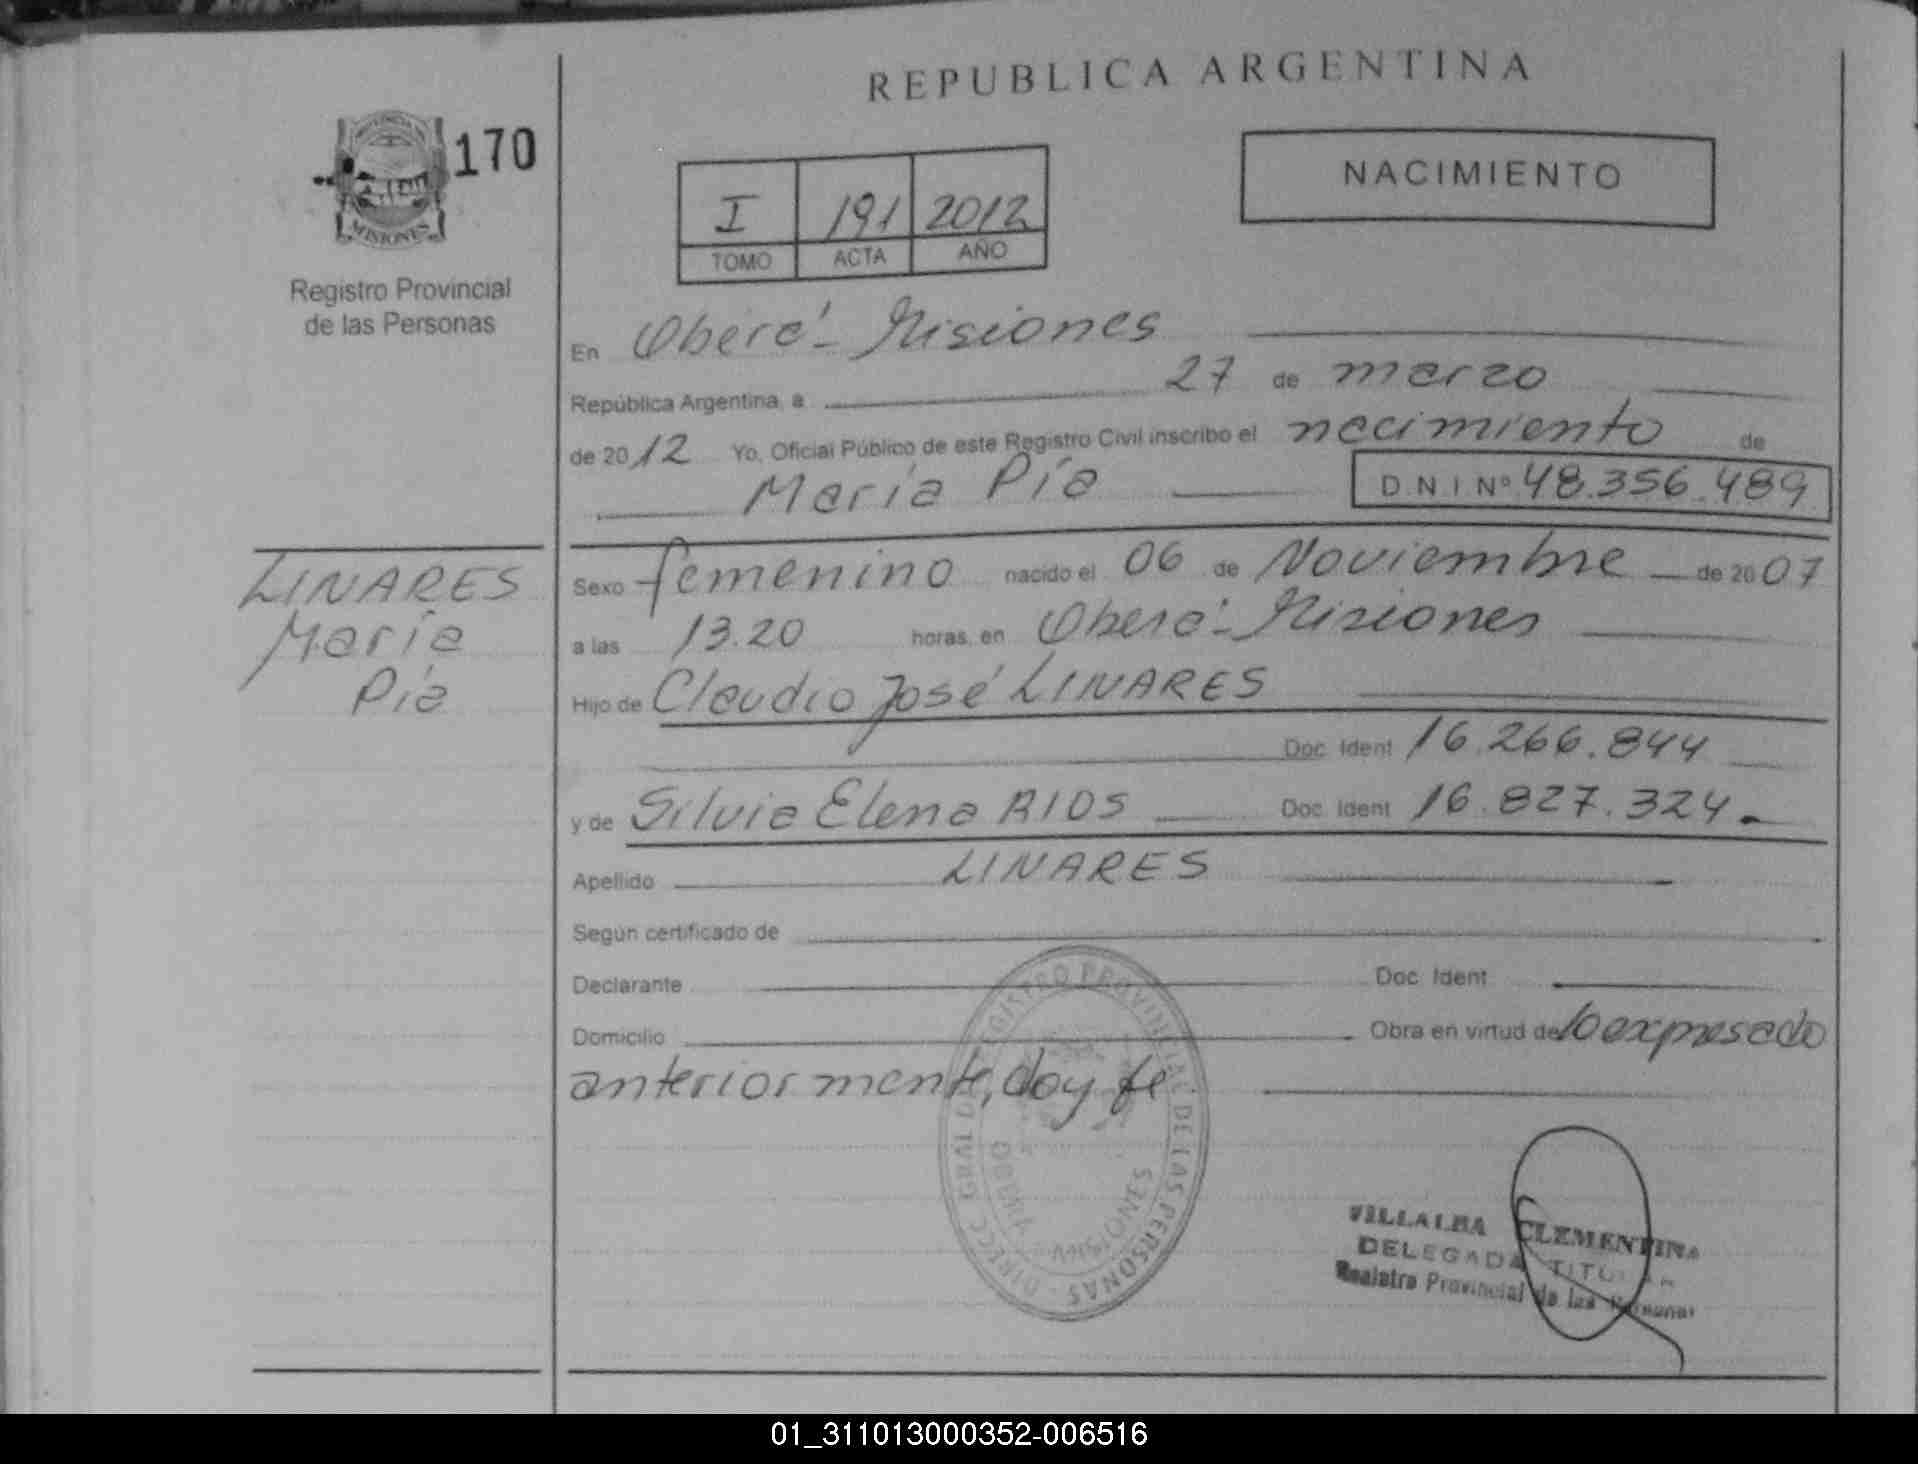 REPUBLICA ARGENTINA
170
MISIONES
Registro Provincial
de las Personas
NACIMIENTO
I 191 2012
TOMO ACTA AÑO
En Oberá - Misiones
República Argentina, a 27 de marzo
de 2012 Yo, Oficial Público de este Registro Civil inscribo el nacimiento de
María Pía D.N.I Nº 48.356.489
LINARES
María
Pía
Sexo femenino nacido el 06 de Noviembre de 2007
a las 13.20 horas, en Oberá - Misiones
Hijo de Claudio José LINARES
Doc. Ident 16.266.844
y de Silvia Elena RIOS Doc. Ident 16.827.324.
Apellido LINARES
Según certificado de
Declarante Doc. Ident
Domicilio Obra en virtud de lo expresado
anteriormente, doy fe
DIRECC. GRAL DE REGISTRO PROVINCIAL DE LAS PERSONAS
OBERA
MISIONES
VILLALBA CLEMENTINA
DELEGADA TITULAR
Registro Provincial de las Personas
01_311013000352-006516